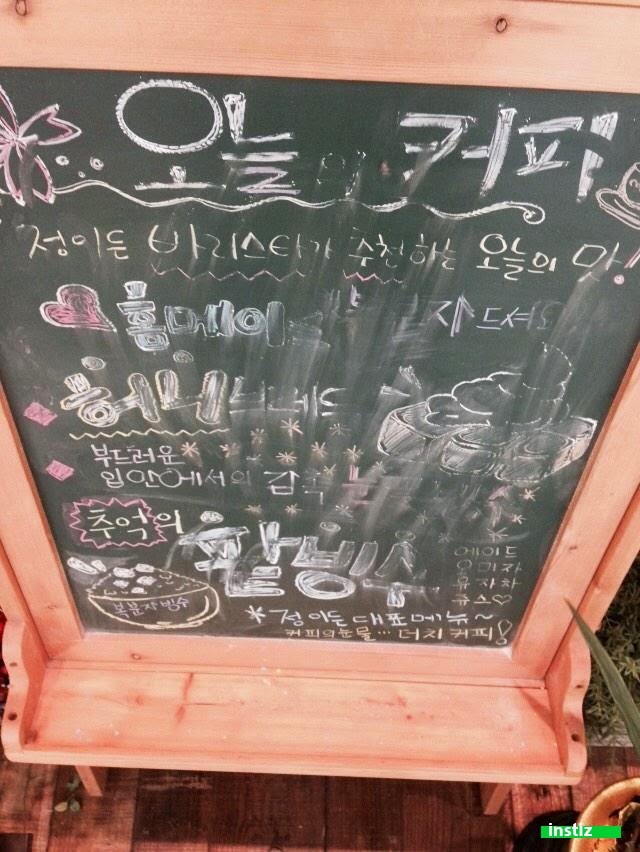 오늘의 커피
정이든 바리스타가 추천하는 오늘의 맛!
홈메이드
허니브레드
부드러움
입안에서의 감촉
추억의
팥빙수
복분자빙수
에이드
오미자
유자차
쥬스♡
*정이든대표메뉴~
커피의눈물... 더치커피!
instiz